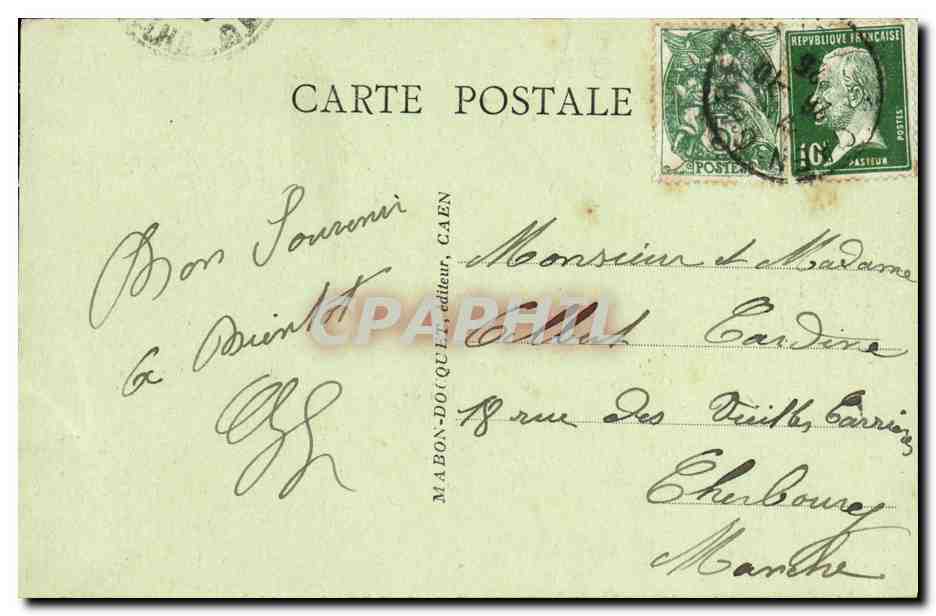 CARTE POSTALE
REPVBLIQUE FRANÇAISE
POSTES
10c
PASTEUR
5
POSTES
Bon Souvenir
a Bientôt
MABON-DOCQUET, éditeur, CAEN
CPAPHIL
Monsieur et Madame
Albert Tardine
18 rue des Vieilles Carrières
Cherbourg
Manche